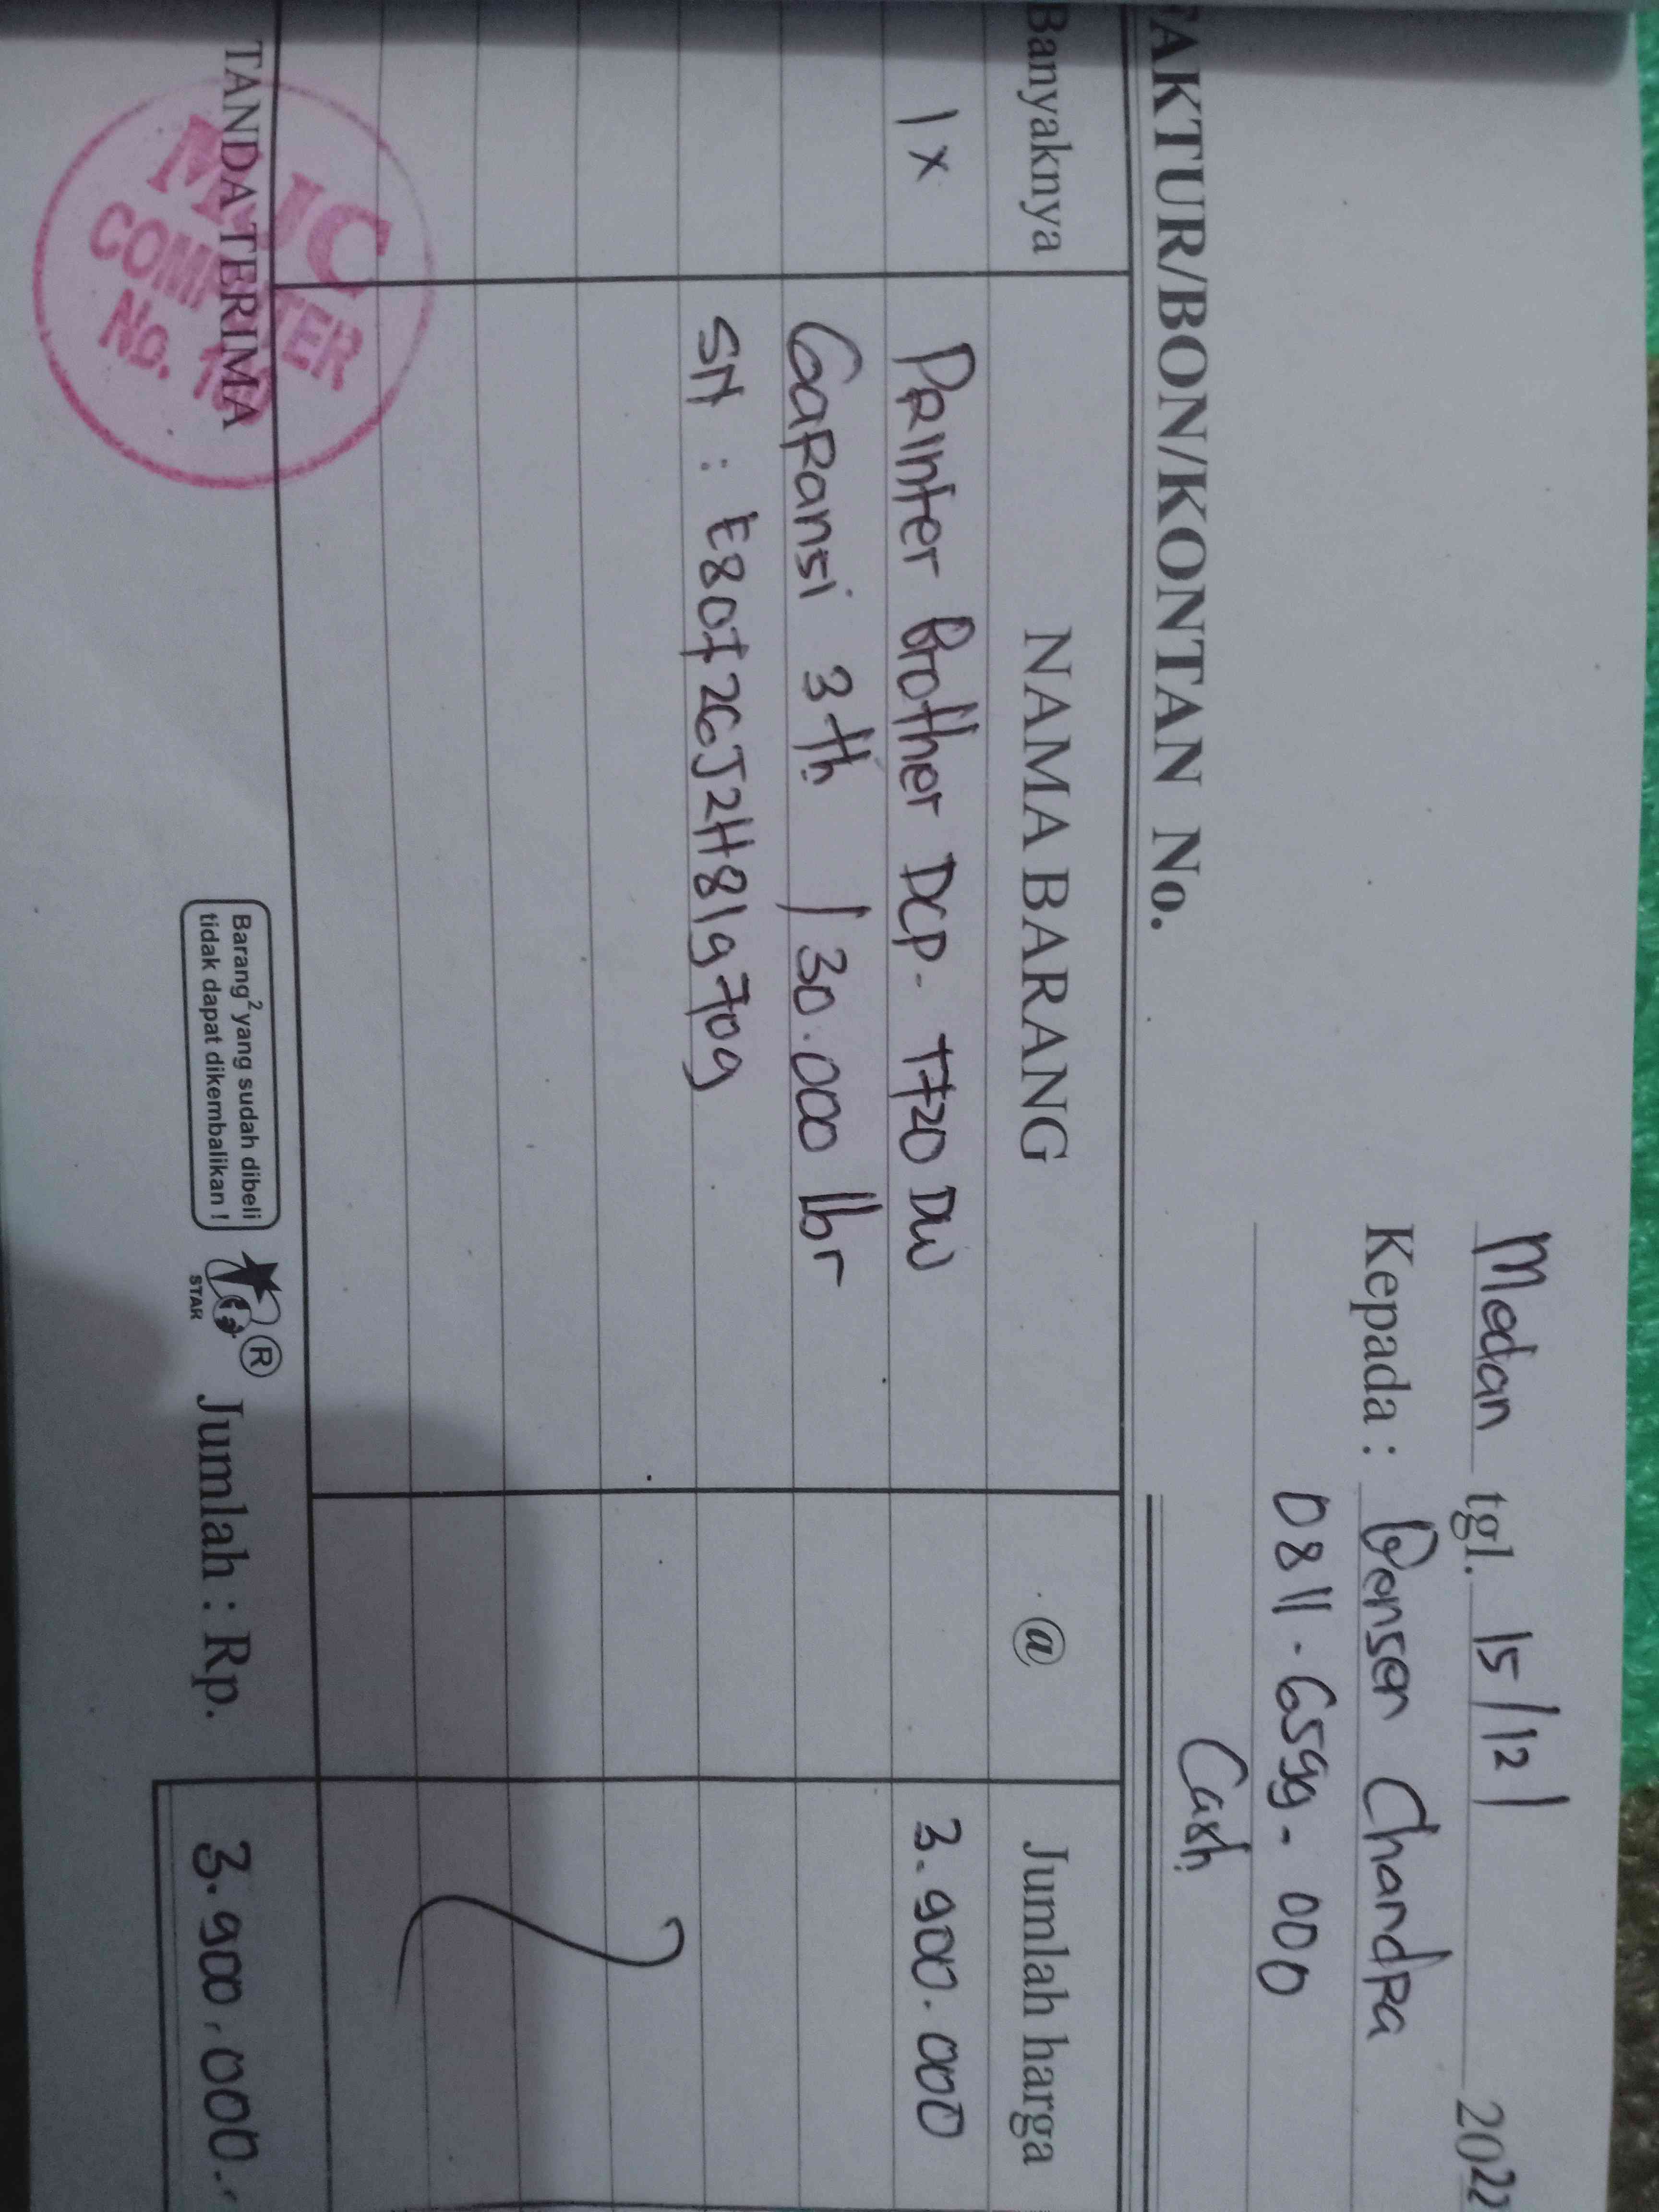 Medan tgl. 15/12/ 2022
Kepada : Densen Chandra
0811-6599-000
Cash
FAKTUR/BON/KONTAN No.
Banyaknya NAMA BARANG @ Jumlah harga
1 x Printer Brother DCP-T720DW 3.900.000
Garansi 3 th / 30.000 lbr
SN : E80726J2H819709
TANDA TERIMA
MJC
COMPUTER
No.
Barang² yang sudah dibeli
tidak dapat dikembalikan !
STAR
®
Jumlah : Rp. 3.900.000.-